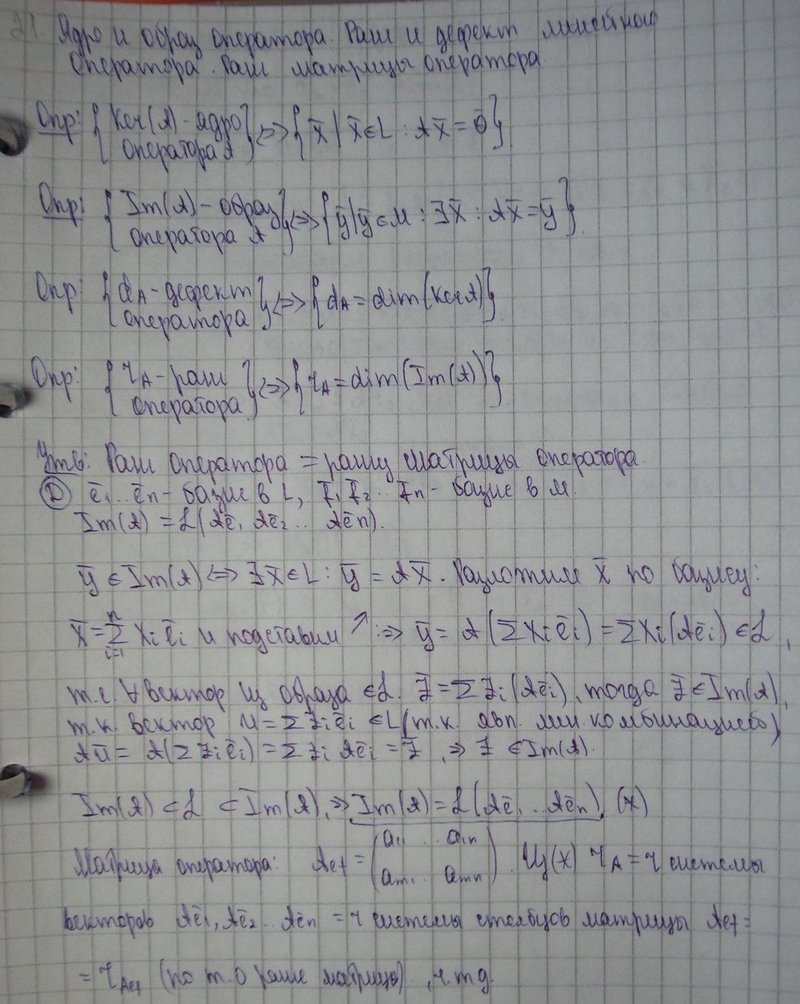 21 Ядро и образ оператора. Ранг и дефект линейного
оператора. Ранг матрицы оператора
Опр: {Ker(A) - ядро оператора A} <=> {x̄ | x̄ ∈ L : Ax̄ = θ̄}
Опр: {Im(A) - образ оператора A} <=> {ȳ | ȳ ∈ M : ∃x̄ : Ax̄ = ȳ}
Опр: {d_A - дефект оператора} <=> {d_A = dim(Ker A)}
Опр: {r_A - ранг оператора} <=> {r_A = dim(Im(A))}
Утв: Ранг оператора = рангу матрицы оператора.
Ⓓ ē₁...ēn - базис в L, f̄₁ f̄₂...f̄n - базис в M.
Im(A) = ℒ(Aē₁ Aē₂...Aēn).
ȳ ∈ Im(A) <=> ∃x̄ ∈ L : ȳ = Ax̄. Разложим x̄ по базису:
x̄ = Σⁿᵢ₌₁ xᵢēᵢ и подставим ↗ : => ȳ = A(Σxᵢēᵢ) = Σxᵢ(Aēᵢ) ∈ ℒ,
т.е. ∀ вектор из образа ∈ ℒ. z̄ = Σzᵢ(Aēᵢ), тогда z̄ ∈ Im(A),
т.к. вектор u = Σzᵢēᵢ ∈ L (т.к. явл. лин. комбинацией)
Aū = A(Σzᵢēᵢ) = Σzᵢ Aēᵢ = z̄, => z̄ ∈ Im(A).
Im(A) ⊂ ℒ ⊂ Im(A), => Im(A) = ℒ(Aē₁...Aēn) (*)
Матрица оператора: A_ef = (a₁₁ ... a₁n / a_m₁ ... a_mn). Из (*) r_A = r системы
векторов Aē₁, Aē₂...Aēn = r системы столбцов матрицы A_ef =
= r_Aef (по т. о ранге матрицы), ч.т.д.